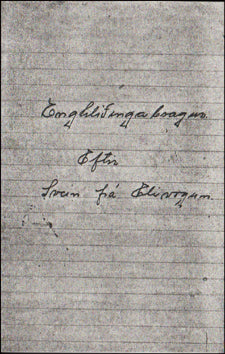 Enghlíðingabragur.
Eftir
Svein frá Elivogum